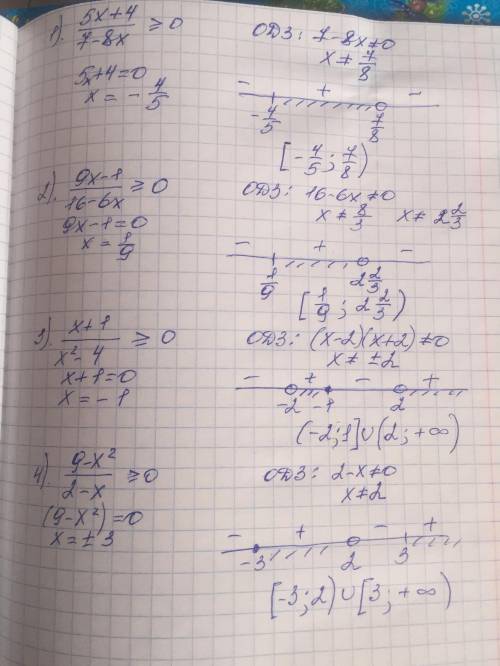 1). (5x+4)/(7-8x) ≥ 0 ОДЗ: 7-8x≠0
x ≠ 7/8
5x+4=0
x = - 4/5
- + -
-4/5 7/8
[-4/5; 7/8)
2). (9x-1)/(16-6x) ≥ 0 ОДЗ: 16-6x≠0
9x-1=0 x ≠ 8/3 x ≠ 2 2/3
x = 1/9
- + -
1/9 2 2/3
[1/9; 2 2/3)
3). (x+1)/(x²-4) ≥ 0 ОДЗ: (x-2)(x+2)≠0
x+1=0 x ≠ ±2
x = -1
- + - +
-2 -1 2
(-2;1]∪(2;+∞)
4). (9-x²)/(2-x) ≥0 ОДЗ: 2-x≠0
x≠2
(9-x²)=0
x=±3
- + - +
-3 2 3
[-3;2)∪[3;+∞)